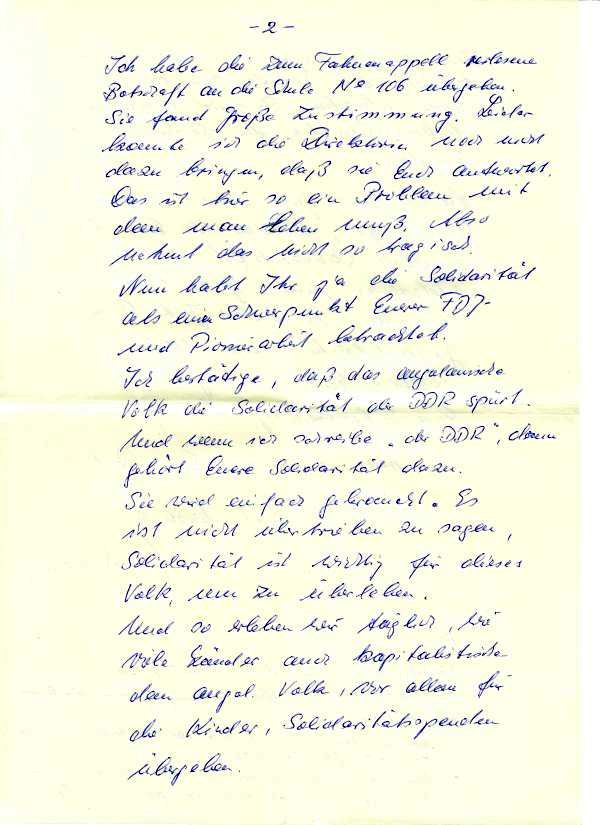 - 2 -
Ich habe die zum Fahnenappell verlesene
Botschaft an die Schule No 106 übergeben.
Sie fand große Zustimmung. Leider
konnte ich die Direktorin noch nicht
dazu bringen, daß sie Euch antwortet.
Das ist hier so ein Problem mit
dem man leben muß. Also
nehmt das nicht so tragisch.
Nun habt Ihr ja die Solidarität
als einen Schwerpunkt Eurer FDJ-
und Pionierarbeit betrachtet.
Ich bestätige, daß das angolanische
Volk die Solidarität der DDR spürt.
Und wenn ich schreibe „der DDR", dann
gehört Eure Solidarität dazu.
Sie wird einfach gebraucht. Es
ist nicht übertrieben zu sagen,
Solidarität ist wichtig für dieses
Volk, um zu überleben.
Und so erleben wir täglich, wie
viele Länder auch kapitalistische
dem angol. Volk, vor allem für
die Kinder, Solidaritätsspenden
übergeben.